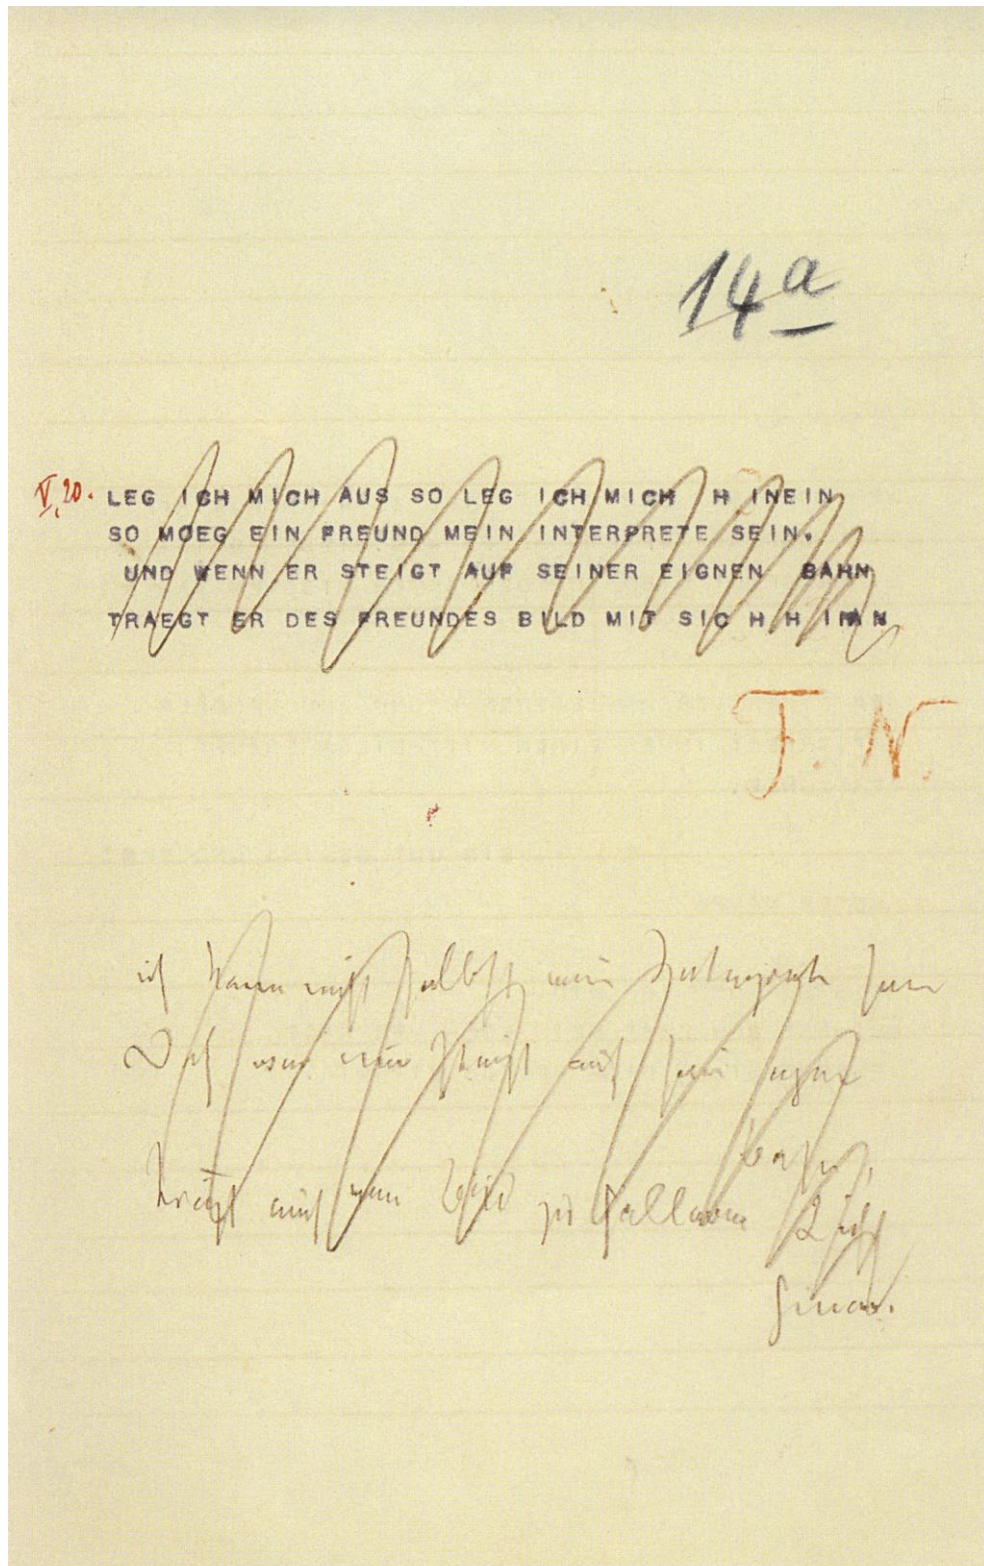 14a
V, 20. LEG ICH MICH AUS SO LEG ICH MICH H INEIN
SO MOEG EIN FREUND MEIN INTERPRETE SEIN.
UND WENN ER STEIGT AUF SEINER EIGNEN BAHN
TRAEGT ER DES FREUNDES BILD MIT SIC H H INAN
F. N.
ich kann nicht selbst mein Interprete sein
Doch wer nur steigt auf seiner eignen
Bahn,
Trägt auch mein Bild zu hellerem Licht
hinan.